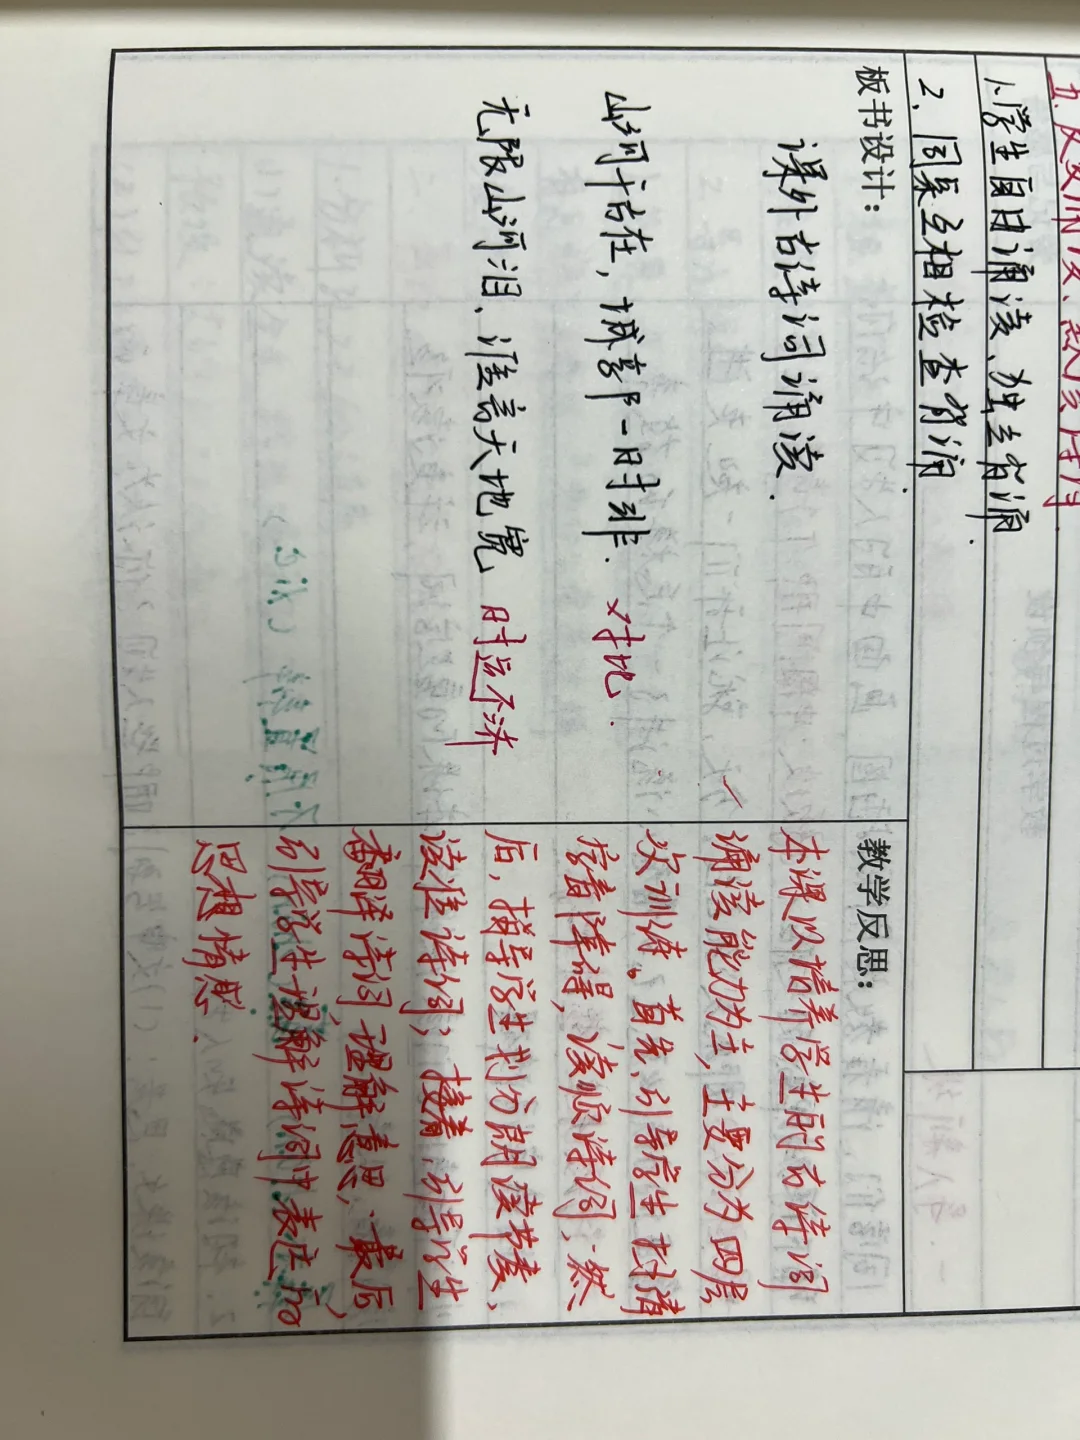 五、反复师读、熟读诗词
1、学生自由诵读、独立背诵
2、同桌互相检查背诵
板书设计:
课外古诗词诵读.
山河千古在,城郭一时非. 对比.
无限山河泪、谁言天地宽 时运不济
教学反思:
本课以培养学生的古诗词
诵读能力为主,主要分为四层
次训练。首先、引导学生扫清
字音障碍,读顺诗词;然
后,指导学生划分朗读节奏,
读准诗词;接着,引导学生
翻译诗词,理解意思,最后,
引导学生理解诗词中表达的
思想情感.